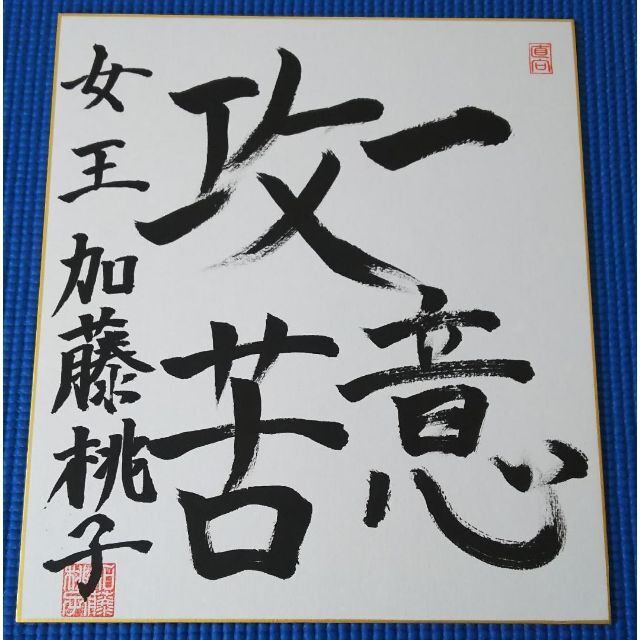 一意
攻苦
女王 加藤桃子
直向
加藤桃子